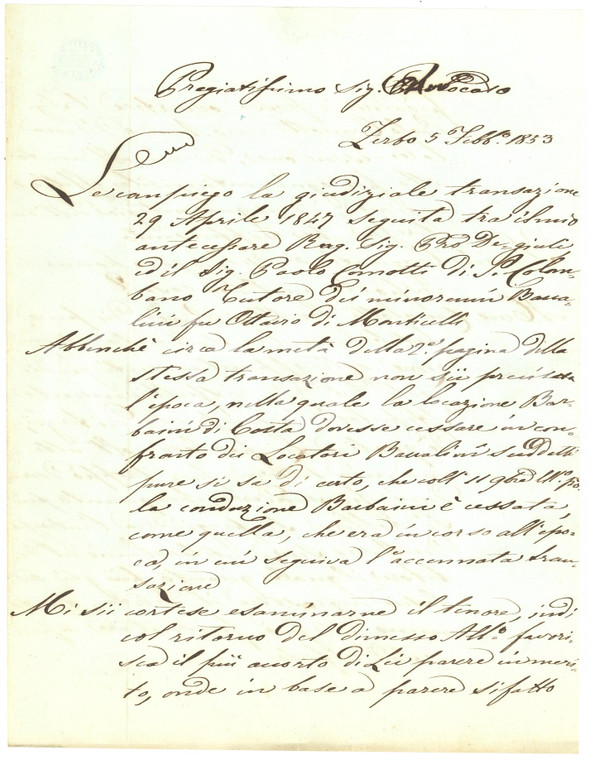 Pregiatissimo Sig.
Zerbo 5 Febb.º 1853
Le compiego la giudiziale transazione
29 Aprile 1847 seguita tra il mio
antecessore Sig.
ed il Sig. Paolo Comotti di S. Colom-
bano Tutore dei minorenni Bava-
lini fu Ottavio di Monticelli
Abbenchè circa la metà della 2.ª pagina della
stessa transazione non sii precisata
l'epoca, nella quale la locazione Bar-
baini di Costa dovesse cessare in con-
fronto dei Locatori Bavalini suddetti
pure si sa di certo, che coll' 11 9bre
la conduzione Barbaini è cessata,
come quella, che era in corso all'epo-
ca, in cui seguiva l'accennata tran-
sazione
Mi sii cortese esaminarne il tenore, indi
col ritorno del dimesso All.º favori-
sca il più accorto di Lei parere in meri-
to, onde in base a parere siffatto